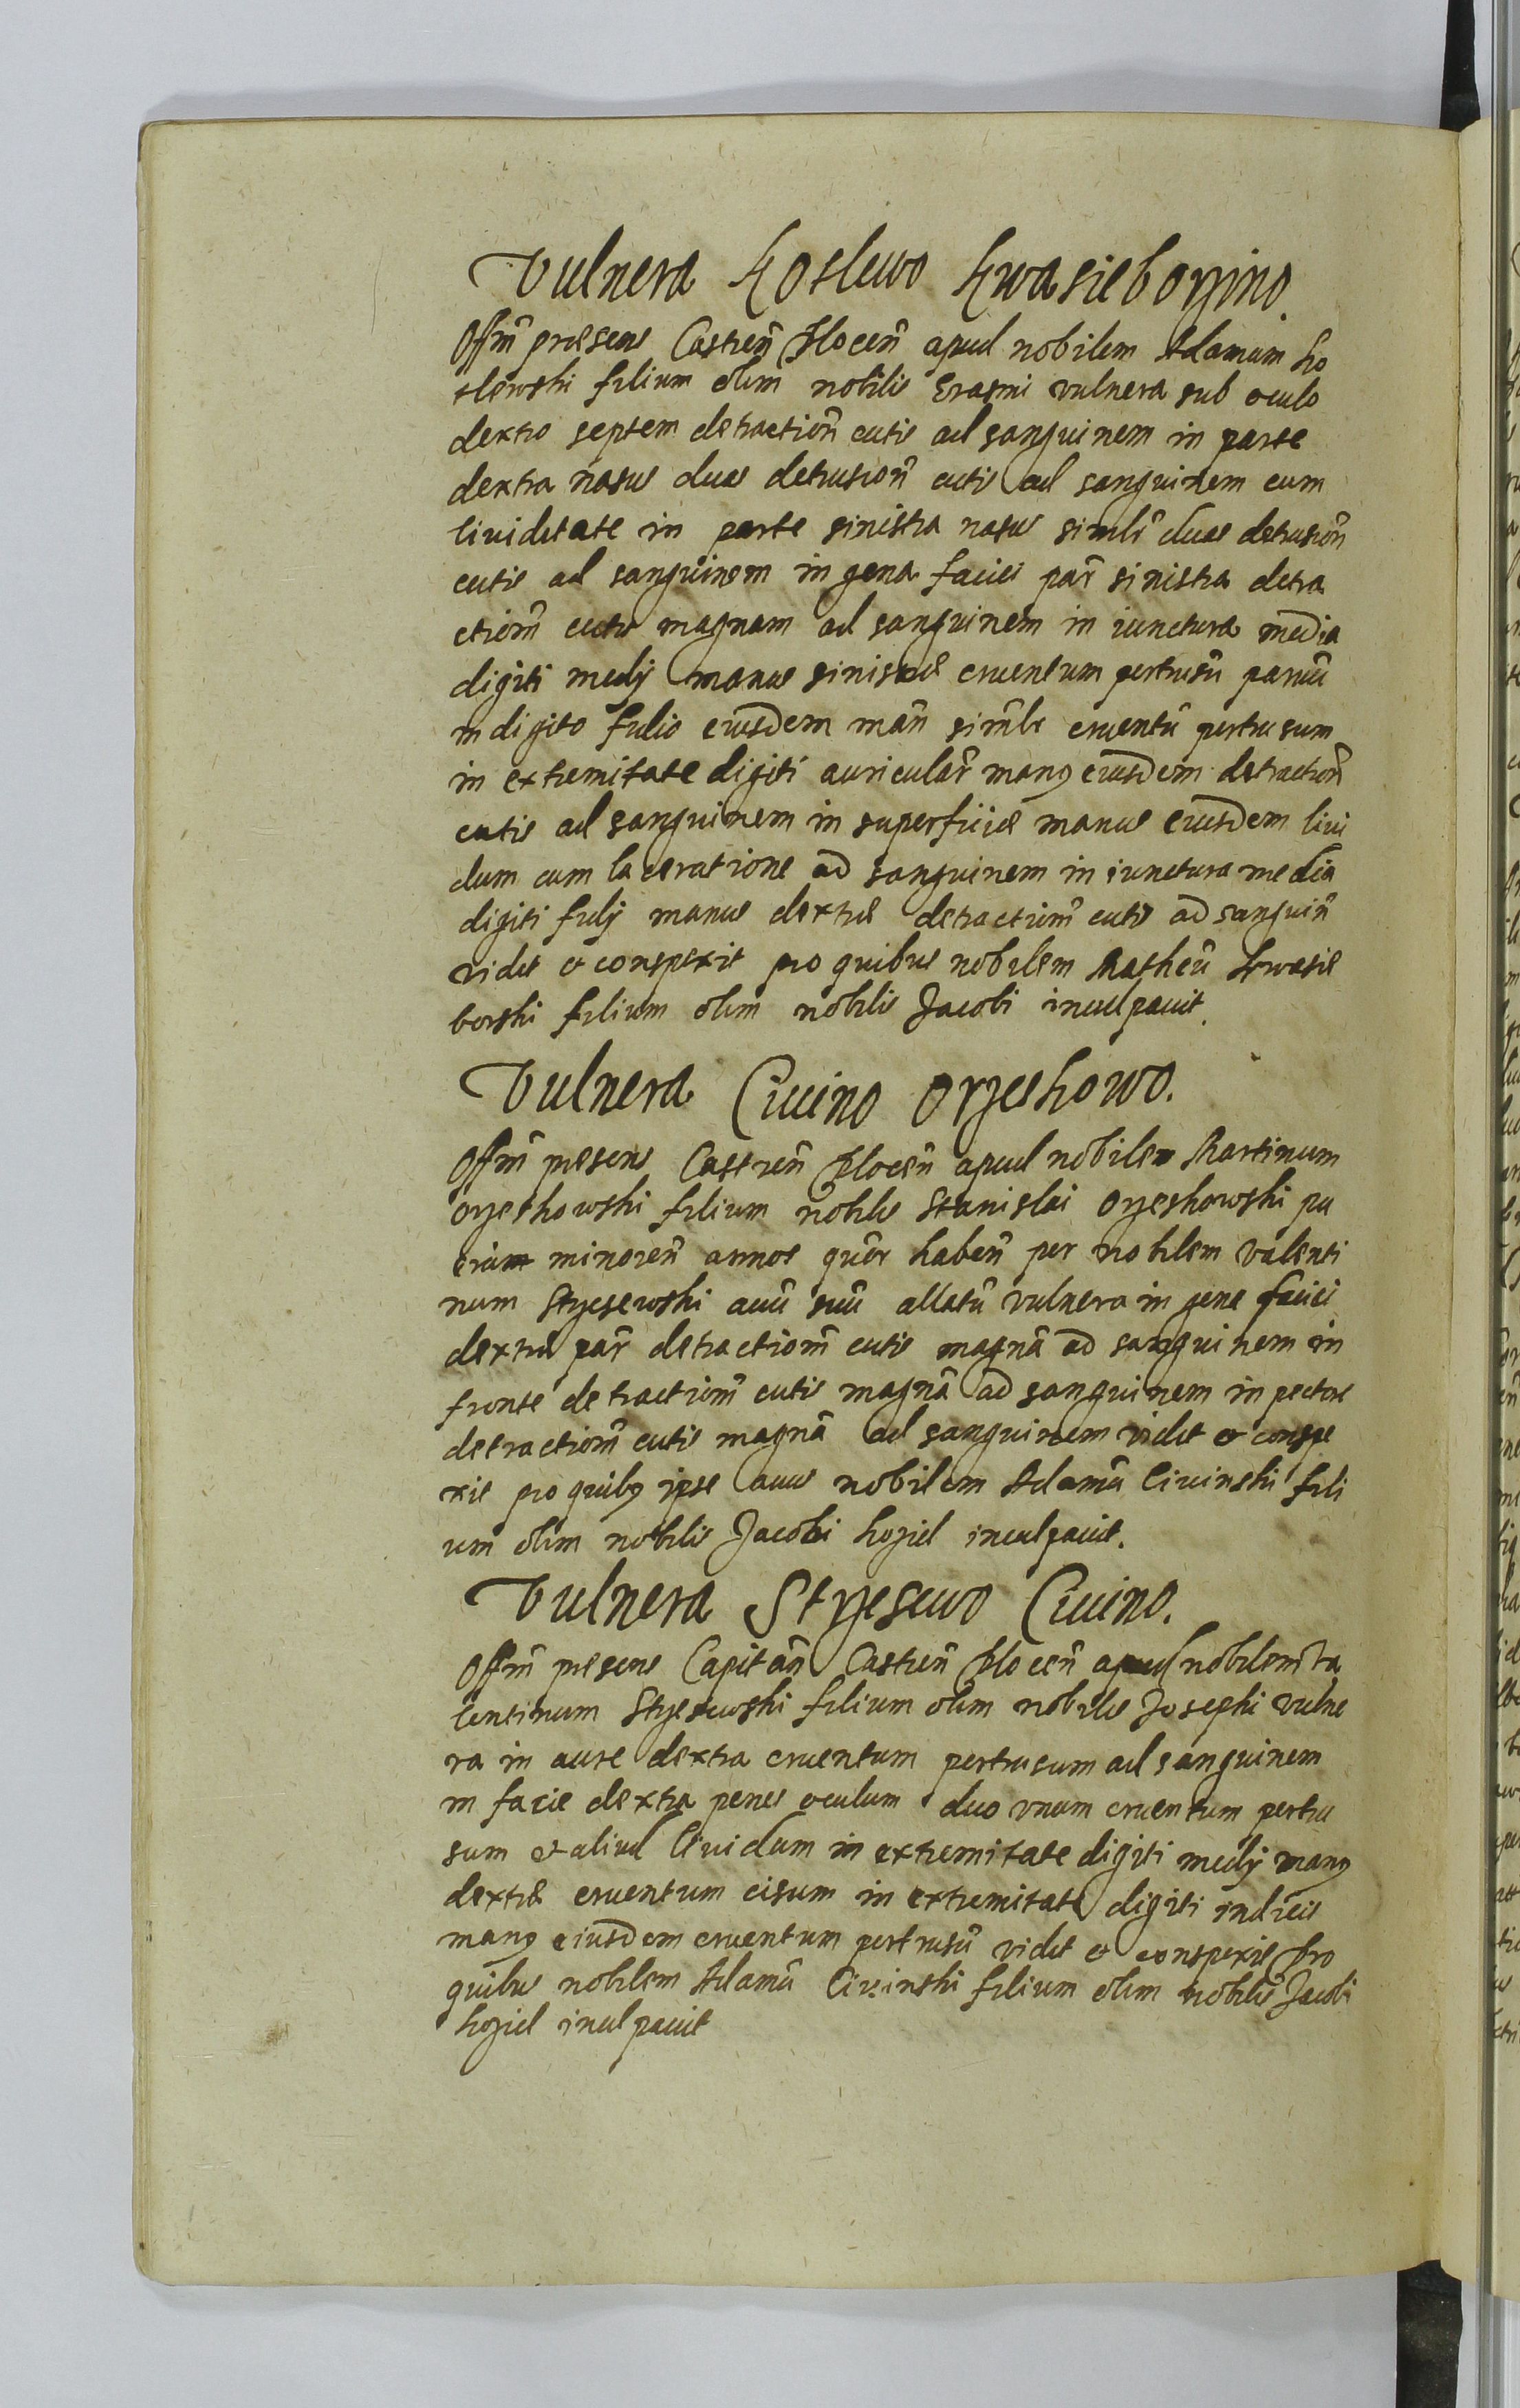 Vulnera Koslewo Kwasieborzino.
Offm̃ præsens Castreñ Ploceñ apud nobilem Adamum Ko
slewski filium olim nobilis Erasmi vulnera sub oculo
dextro septem detractioñ cutis ad sanguinem in parte
dextra nasus duas detrusioñ cutis ad sanguinem cum
lividitate in parte sinistra nasus similr̃ duas detrusioñ
cutis ad sanguinem in gena faciei par̃ sinistra detra
ctiom̃ cutis magnam ad sanguinem in iunctura media
digiti medij manus sinistræ cruentum pertrusũ paruũ
in digito fulio eiusdem mañ similr cruentũ pertrusum
in extremitate digiti auricular̃ manus eiusdem detractioñ
cutis ad sanguinem in superficie manus eiusdem livi
dum cum laceratione ad sanguinem in iunctura media
digiti fulij manus dextræ detractiom̃ cutis ad sanguiñ
vidit et conspexit pro quibus nobilem Matheũ Kwasie
borski filium olim nobilis Jacobi inculpauit.
Vulnera Ciuino Orzeskowo.
Offm̃ præsens Castreñ Ploceñ apud nobilem Martinum
Orzeskowski filium nobilis Stanislai Orzeskowski pu
erum minoreñ annos quor habeñ per nobilem Valenti
num Strzesewski auũ suũ allatũ vulnera in gena faciei
dextræ par̃ detractiom̃ cutis magnã ad sanguinem in
fronte detractiom̃ cutis magnã ad sanguinem in pectore
detractiom̃ cutis magnã ad sanguinem vidit et conspe
xit pro quibus ipse auus nobilem Adamũ Ciuinski fili
um olim nobilis Jacobi Koziel inculpauit.
Vulnera Strzesewo Ciuino.
Offm̃ præsens Capitañ Castreñ Ploceñ apud nobilem Va
lentinum Strzesewski filium olim nobilis Josephi vulne
ra in aure dextra cruentum pertrusum ad sanguinem
in facie dextra penes oculum duo vnum cruentum pertru
sum et aliud lividum in extremitate digiti medij manus
dextræ cruentum cisum in extremitate digiti indicis
manus eiusdem cruentum pertrusũ vidit et conspexit Pro
quibus nobilem Adamũ Ciuinski filium olim nobilis Jacobi
Koziel inculpauit